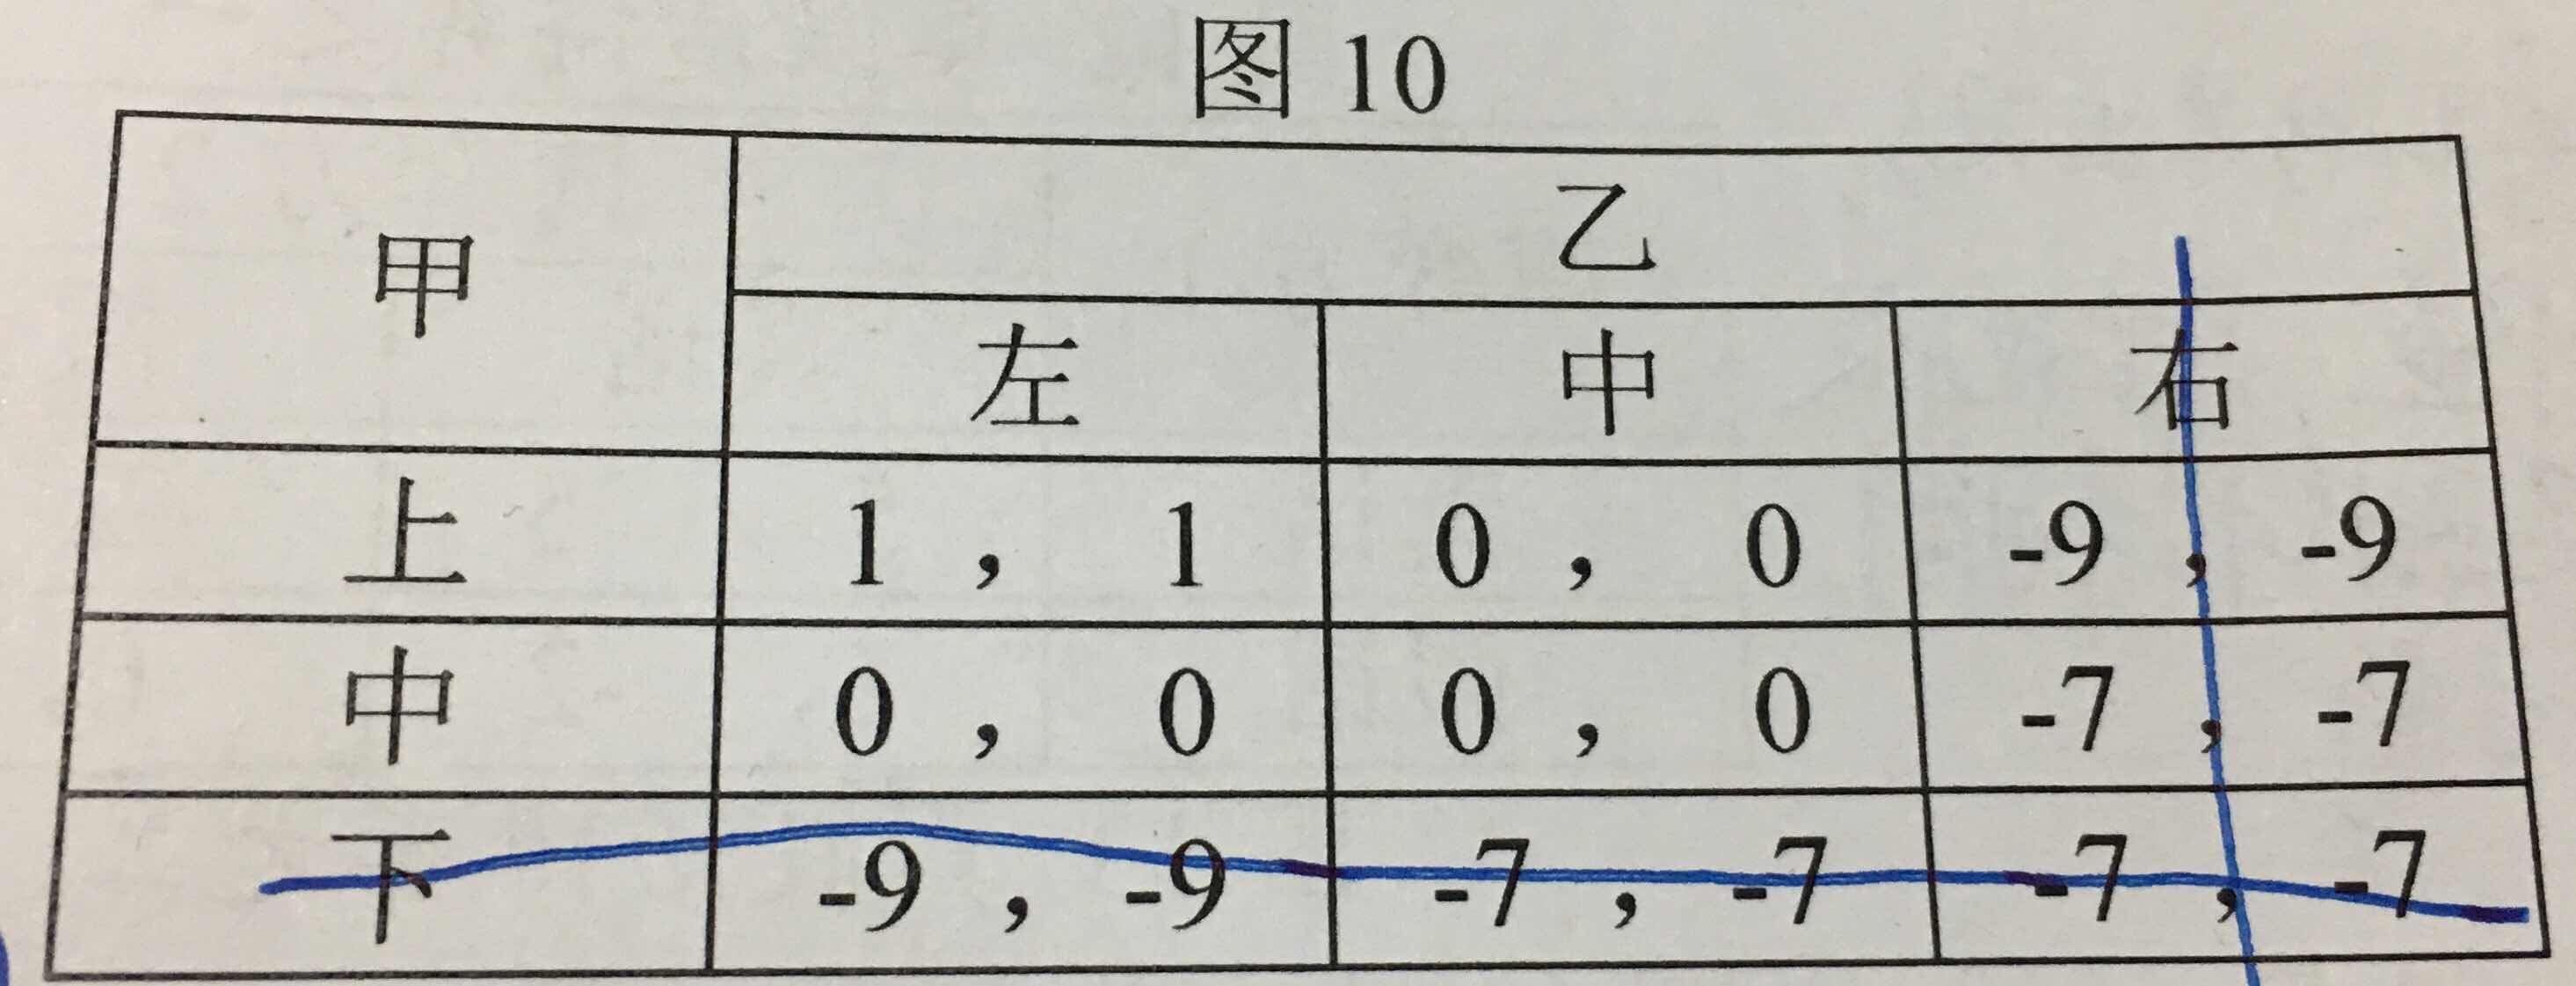 图 10
甲 乙
左 中 右
上 1 ， 1 0 ， 0 -9 ， -9
中 0 ， 0 0 ， 0 -7 ， -7
下 -9 ， -9 -7 ， -7 -7 ， -7